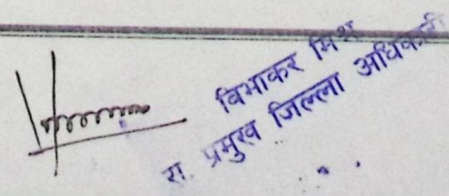 विभाकर मिश्र
रा. प्रमुख जिल्ला अधिकारी